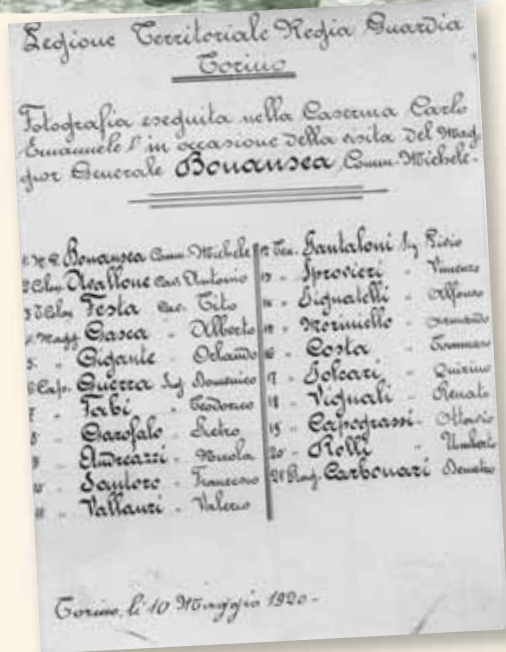 Legione Territoriale Regia Guardia
Torino
Fotografia eseguita nella Caserma Carlo
Emanuele I° in occasione della visita del Mag
gior Generale Bonansea, Comm. Michele.
Bonansea Comm. Michele
2 Avallone Cav. Antonio
3 Festa Cav. Tito
4 Magg. Gasca " Alberto
5. " Gigante " Orlando
6 Cap. Guerra Sig Domenico
7 " Fabi " Teodorico
8 " Garofalo " Pietro
9 " Andreazzi " Nicola
10 " Santoro " Francesco
11 " Vallauri " Valerio
12 Ten. Santaloni Sig Pisio
13 " Sprovieri " Vincenzo
14 " Pignatelli " Alfonso
15 " Moriniello " Armando
16 " Costa " Tommaso
17 " Solcari " Quirino
18 " Vignali " Renato
19 " Capograssi " Ottavio
20 " Rolli " Umberto
21 Rag. Carbonari Demetrio
Torino, li 10 Maggio 1920.